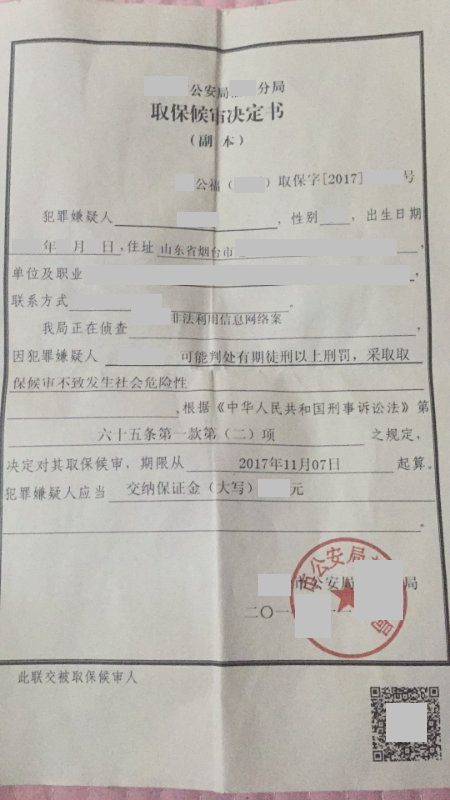 公安局 分局
取保候审决定书
（副 本）
公福（ ）取保字[2017] 号
犯罪嫌疑人 ，性别 ，出生日期
年 月 日，住址 山东省烟台市 ，
单位及职业 ，
联系方式 。
我局正在侦查 非法利用信息网络案 ，
因犯罪嫌疑人 可能判处有期徒刑以上刑罚，采取取
保候审不致发生社会危险性
,根据《中华人民共和国刑事诉讼法》第
六十五条第一款第（二）项 之规定，
决定对其取保候审，期限从 2017年11月07日 起算。
犯罪嫌疑人应当 交纳保证金（大写） 元
。
市公安局 局
二〇一
市公安局
此联交被取保候审人